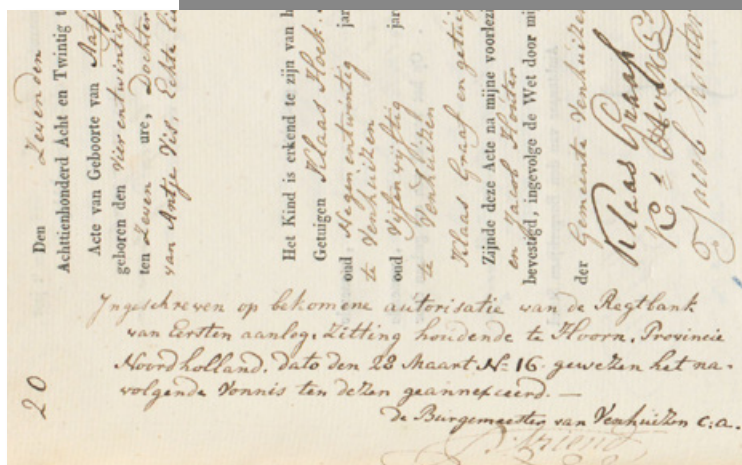 Den Zevenden
Achttienhonderd Acht en Twintig
Acte van Geboorte van
geboren den vier en twintigs
ten Zeven ure, Dochter
van Antje Vis, Echte
Het Kind is erkend te zijn van
Getuigen Klaas Hoek
oud Negenentwintig jar
te Venhuizen
oud Vijfenvijftig jar
te Venhuizen
Klaas Graaf en getuig
Zijnde deze Acte na mijne voorlezi
en Jacob Houter
bevestigd, ingevolge de Wet door mi
der Gemeente Venhuizen
Klaas Graaf
Jacob Houter
20
Ingeschreven op bekomene autorisatie van de Regtbank
van Eersten aanleg, Zitting houdende te Hoorn, Provincie
Noordholland, dato den 28 Maart, No 16. gewezen het na-
volgende Vonnis ten dezen geannexeerd. —
de Burgemeester van Venhuizen c:a.